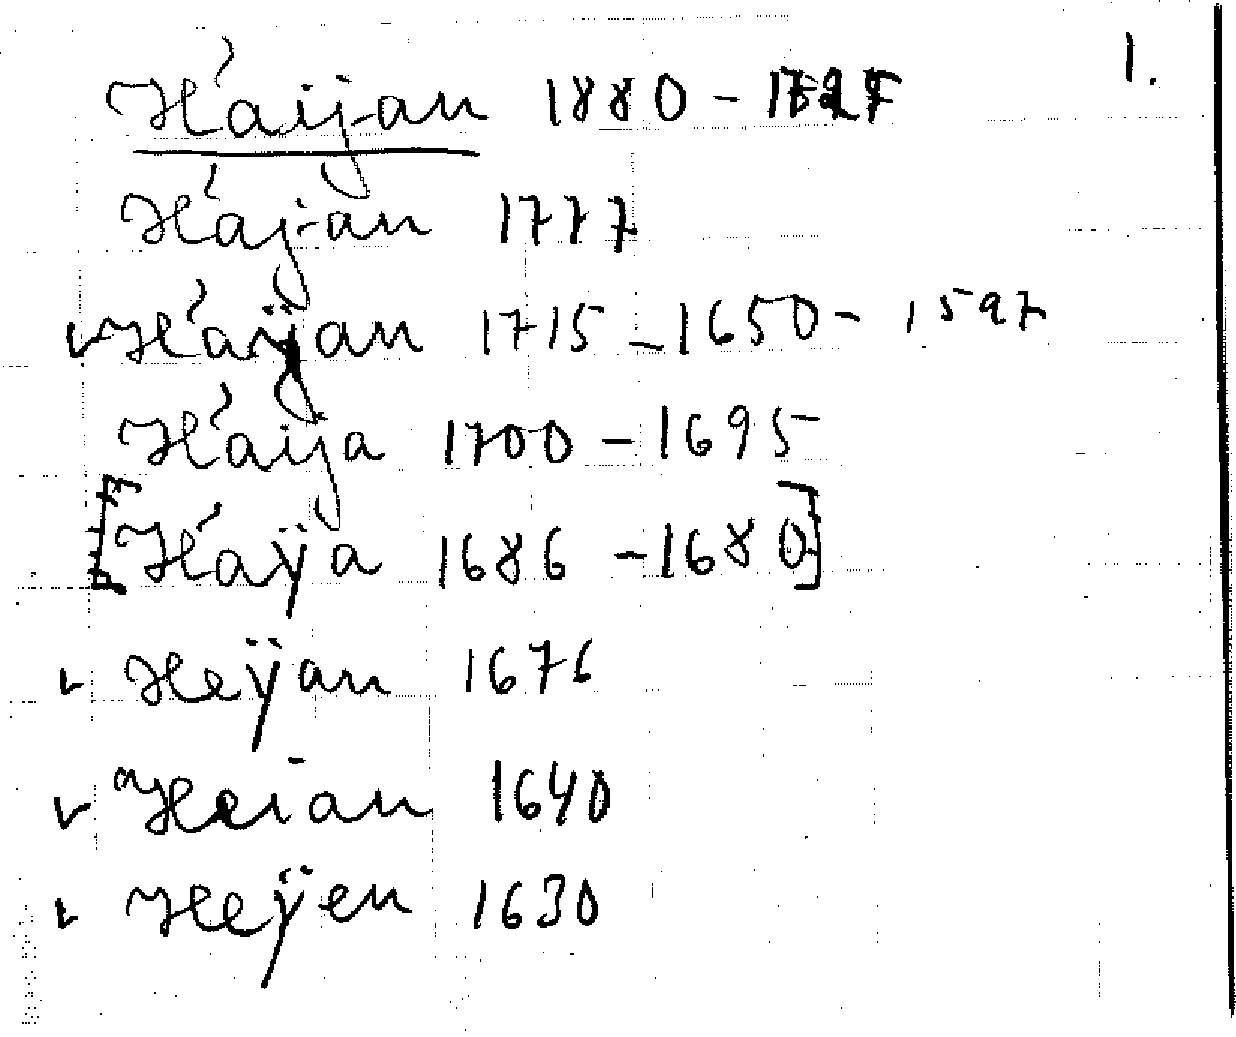 1.
Háijan 1880 - 1727
Hájan 1777
Háÿan 1715 - 1650 - 1597
Háija 1700 - 1695
[Háÿa 1686 - 1680]
Heÿan 1676
Heian 1640
Heÿen 1630